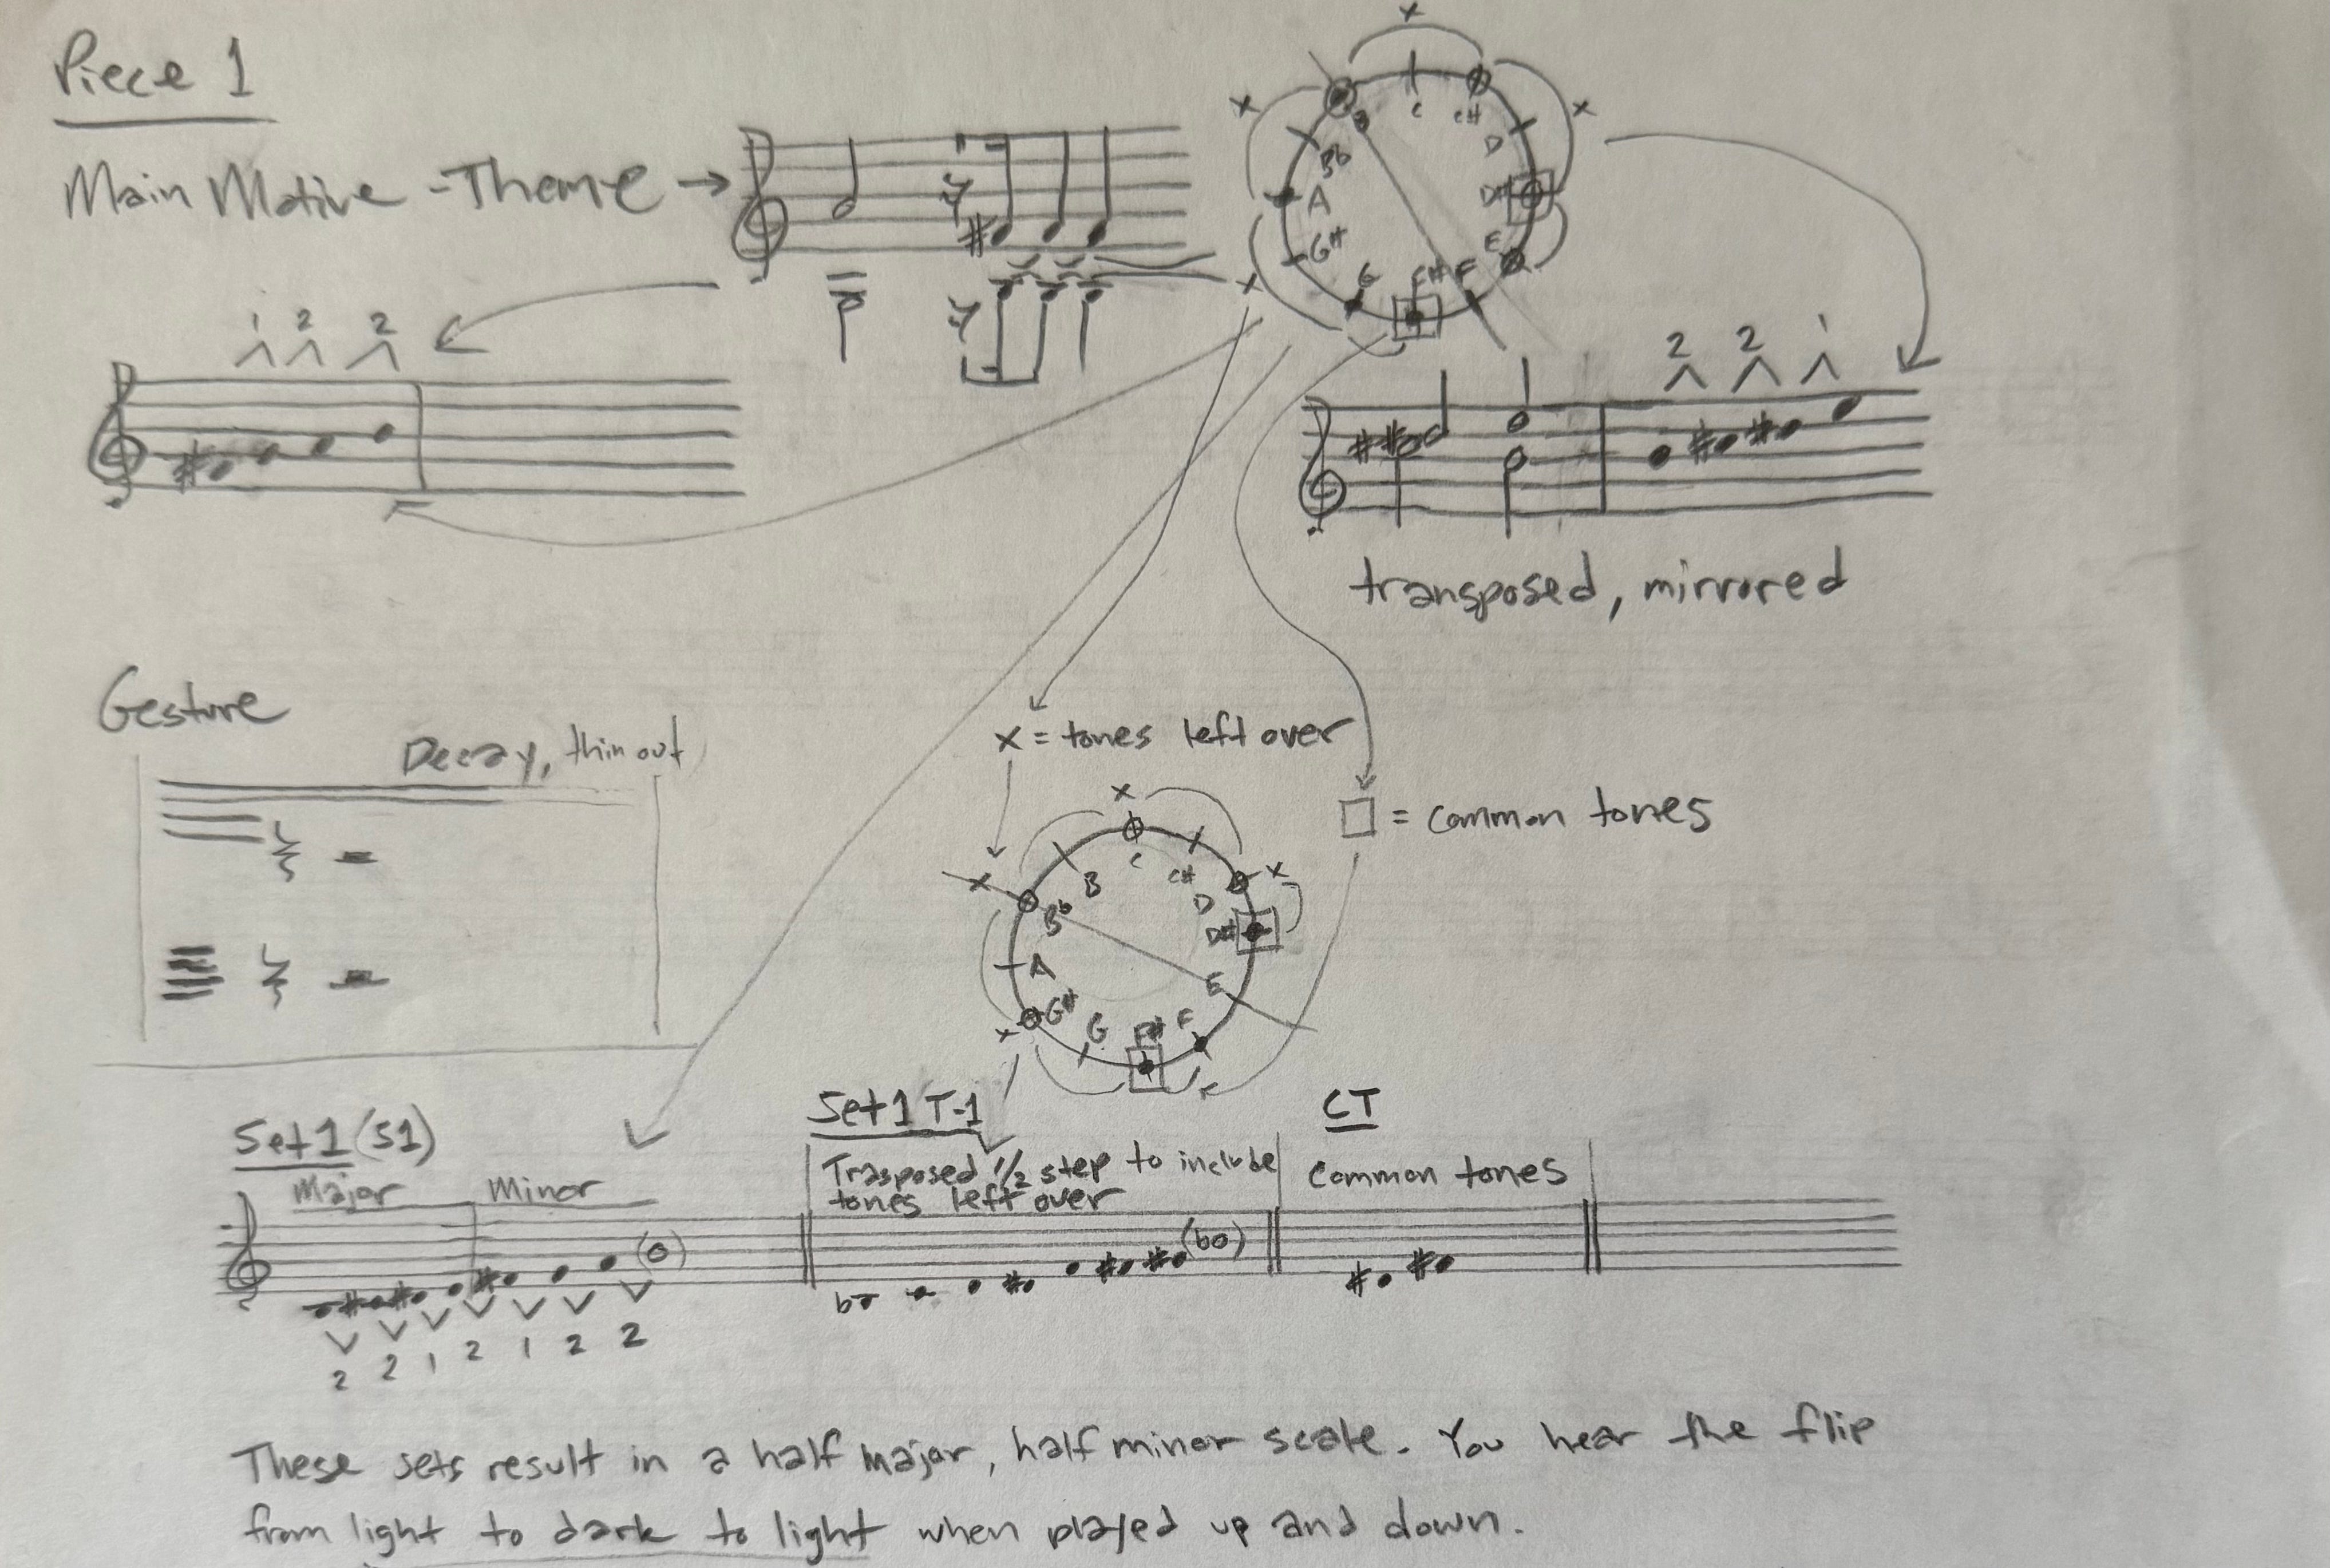 Piece 1
Main Motive - Theme →
x
x
x
B
C
C#
Bb
D
A
D#
G#
E
G
F#
F
x
1 2 2
2 2 1
transposed, mirrored
Gesture
Decay, thin out
x = tones left over
□ = common tones
x
x
x
C
B
C#
Bb
D
D#
A
E
G#
G
F#
F
x
Set 1 (S1)
Major
Minor
Set 1 T-1
Trasposed 1/2 step to include
tones left over
CT
Common tones
2 2 1 2 1 2 2
These sets result in a half major, half minor scale. You hear the flip
from light to dark to light when played up and down.